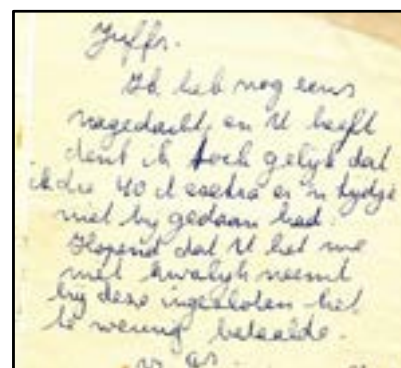 Juffr.
Ik heb nog eens
nagedacht, en U heeft
denk ik toch gelijk dat
ik die 40 ct extra er 'n tydje
niet by gedaan had.
Hopend dat U het me
niet kwalyk neemt
by deze ingesloten het
te weinig betaalde.